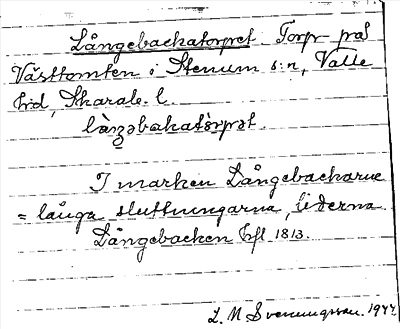 Långebackatorpet. Torp på
Västtomten i Stenum s:n, Valle
hd, Skarab. l.
làŋgəbakatòrpət.
I marken Långebackarne
= långa sluttningarna, liderna.
Långebacken hfl 1813.
L. M Svenungsson. 1947